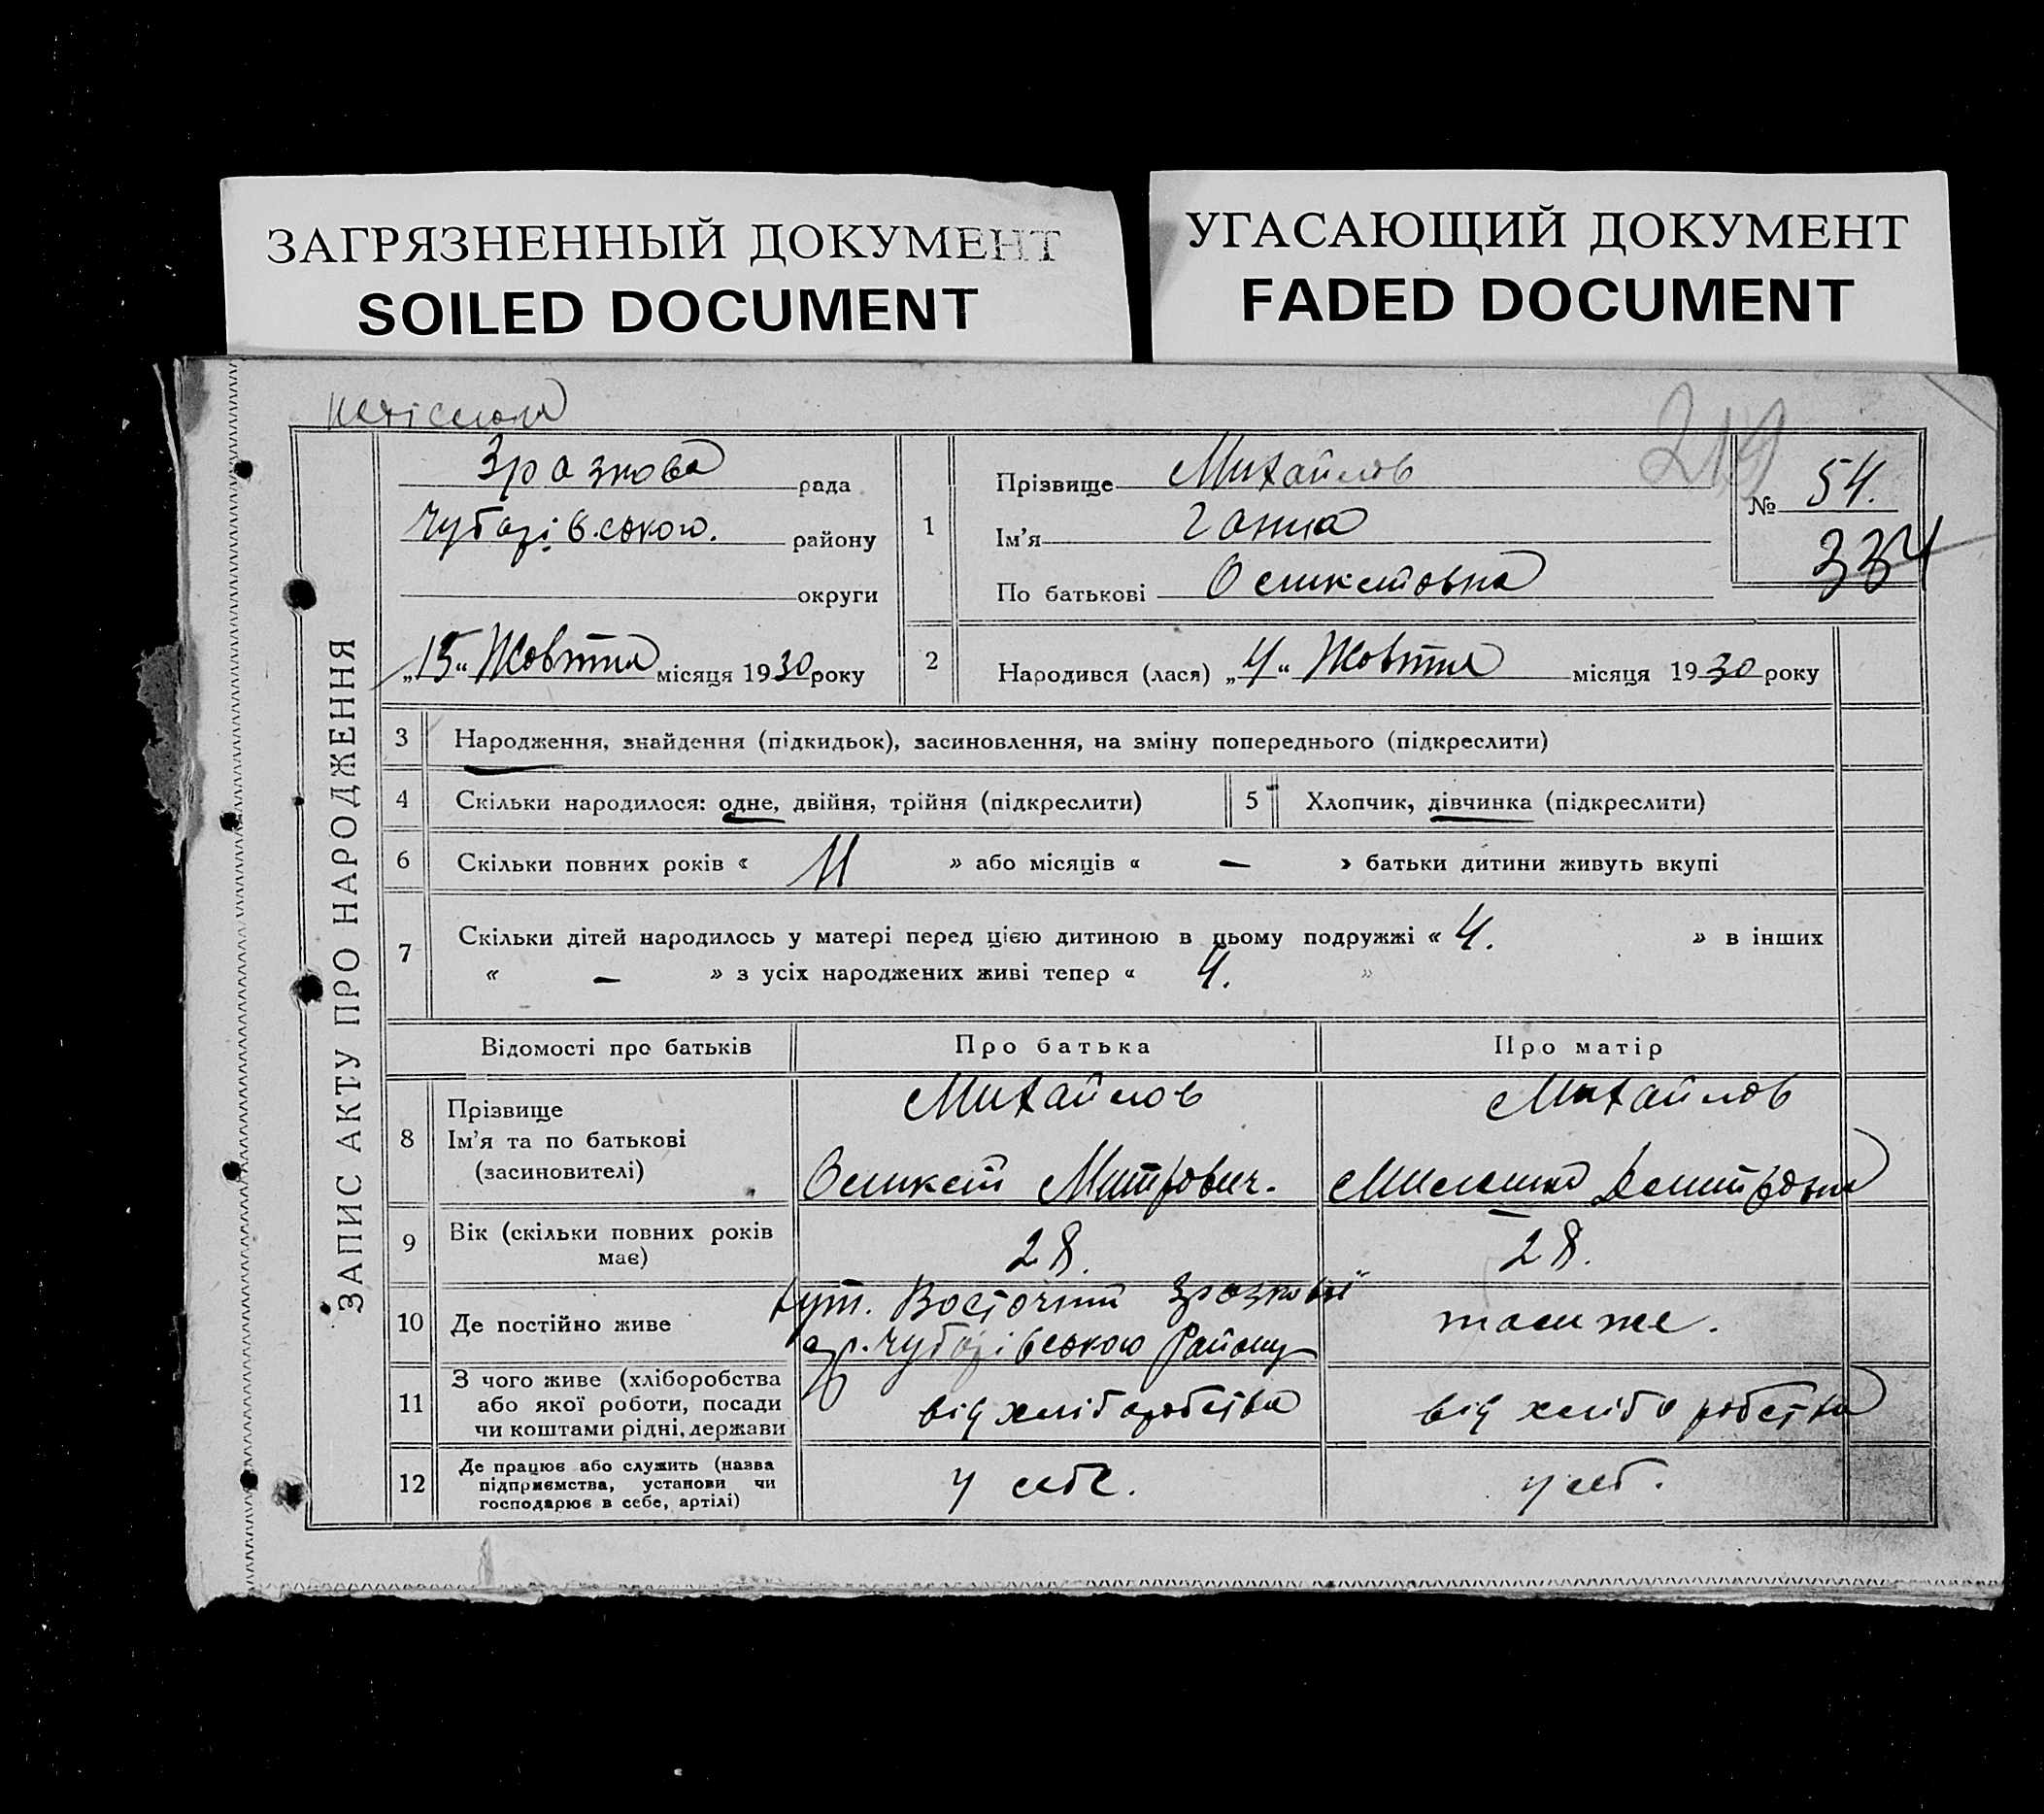 ЗАГРЯЗНЕННЫЙ ДОКУМЕНТ
SOILED DOCUMENT
УГАСАЮЩИЙ ДОКУМЕНТ
FADED DOCUMENT
219
ЗАПИС АКТУ ПРО НАРОДЖЕННЯ
Зразкова рада
Чубарівського. району
округи
„15“ Жовтня місяця 1930 року
1 Прізвище Михайлов
Ім'я Ганна
По батькові
№ 54.
334
2 Народився (лася) „4“ Жовтня місяця 1930 року
3 Народження, знайдення (підкидьок), засиновлення, на зміну попереднього (підкреслити)
4 Скільки народилося: одне, двійня, трійня (підкреслити) 5 Хлопчик, дівчинка (підкреслити)
6 Скільки повних років « 11 » або місяців « — » батьки дитини живуть вкупі
7 Скільки дітей народилось у матері перед цією дитиною в цьому подружжі « 4. » в інших
« — » з усіх народжених живі тепер « 4. »
Відомості про батьків Про батька Про матір
8 Прізвище
Ім'я та по батькові
(засиновителі)
Михайлов
Митрович.
Михайлов
9 Вік (скільки повних років
має)
28.
28.
10 Де постійно живе
хут. Восточний Зразкової
Чубарівського Району
також же.
11 З чого живе (хліборобства
або якої роботи, посади
чи коштами рідні, держави
від хліборобства
від хліборобства
12 Де працює або служить (назва
підприємства, установи чи
господарює в себе, артілі)
у себе.
у себ.